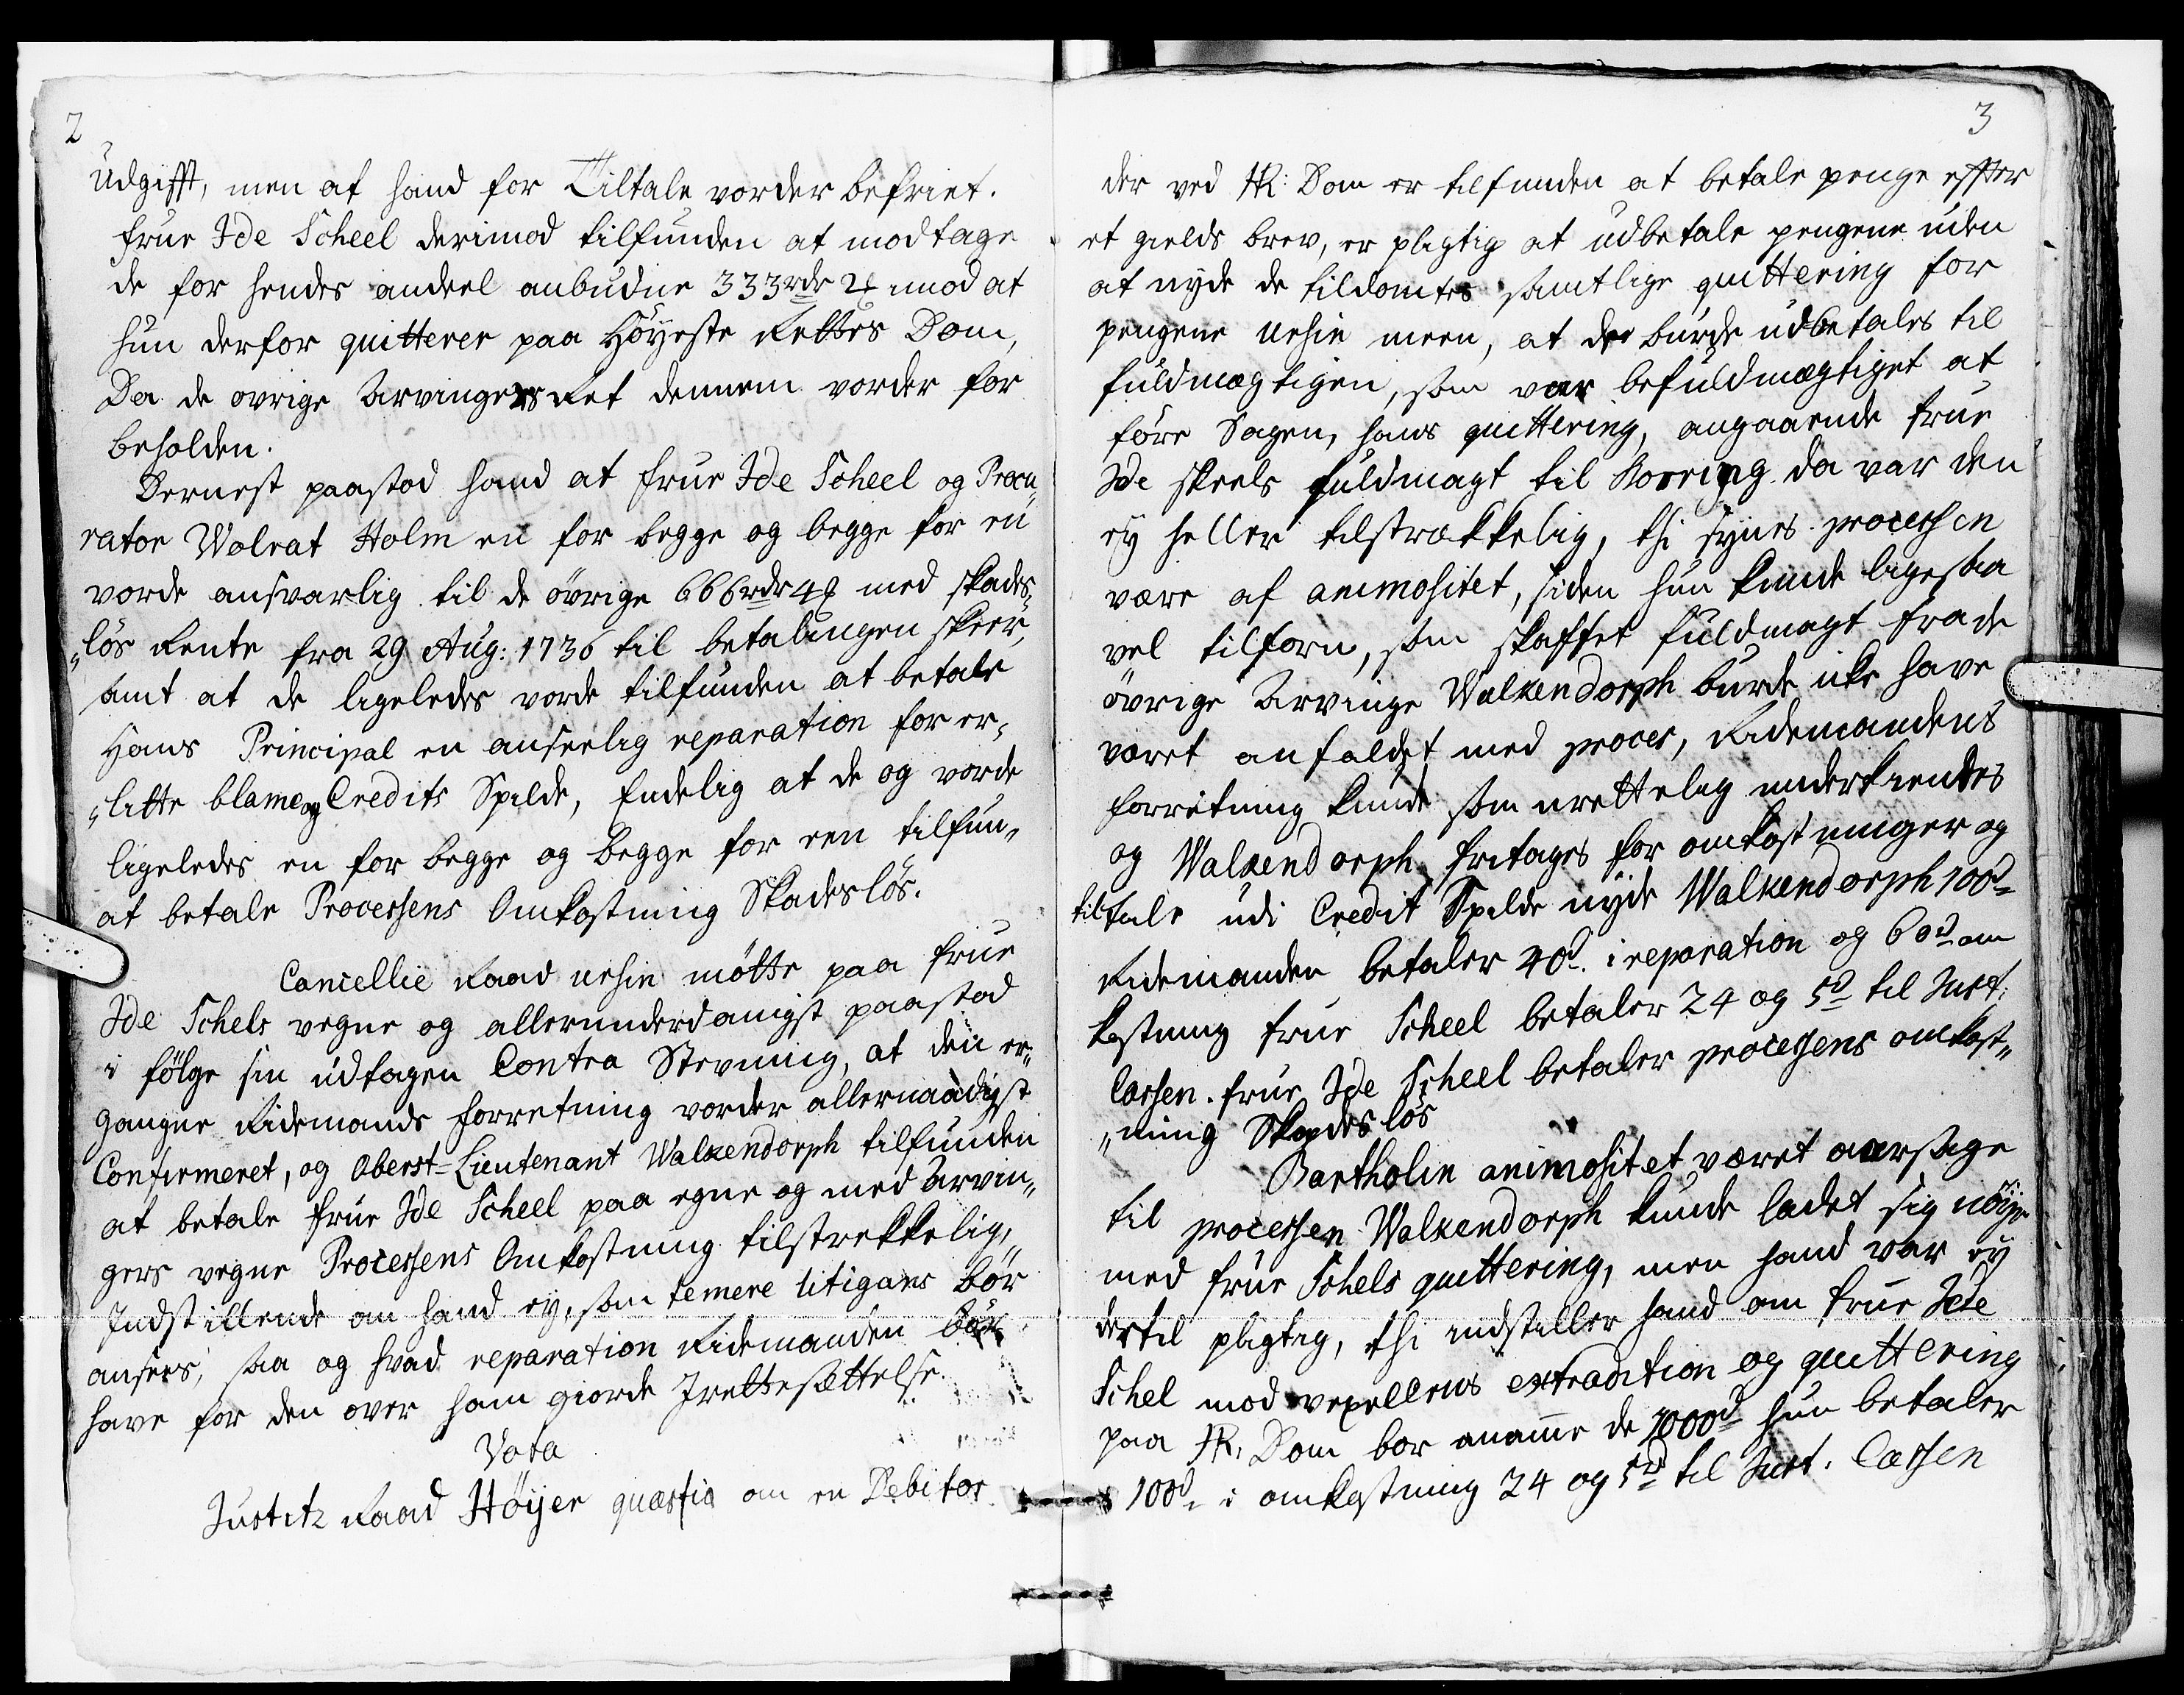 2
Udgifft, men at hand for Tiltale vorder befriet.
Frue Ide Scheel derimod tilfunden at modtage
de for hendes andeel anbudne 333 rdr 2 mod at
hun derfor quitterer paa Høyeste Rettes Dom,
Da de ovrige Arvingers Ret dennem vorder for
beholden.
Dernest paastod hand at Frue Ide Scheel og Procu„
rator Wolrat Holm en for begge og begge for en
vorde ansvarlig til de øvrige 666 rdr 4 med skades„
„løs Rente fra 29 Aug: 1736 til betalingen skeer,
samt at de ligeledes vorde tilfunden at betale
Hans Principal en anseelig reparation for er„
„litte blame og Credits Spilde, Endelig at de og vorde
ligeledes en for begge og begge for een tilfun„
at betale Processens Omkostning Skadesløs.
Cancellie Raad Uhsin møtte paa Frue
Ide Schels vegne og allerunderdanigst paastod
i følge sin udtagen Contra Stevning, at den er„
gangne Ridemands Forretning vorder allernaadigst
Confirmeret, og Oberst-Lieutenant Walkendorph tilfunden
at betale Frue Ide Scheel paa egne og med Arvin„
gers vegne Processens Omkostning tilstrekkelig,
Indstillende om hand ey, som temere litigans bør
ansees, saa og hvad reparation Ridemanden bør
have for den over ham giorde Irettesættelse.
Vota
Justitz Raad Höyer quæstio om en Debitor
3
der ved HR: Dom er tilfunden at betale penge effter
et gields brev, er pligtig at udbetale pengene uden
at nyde de tildomtes samtlige quittering for
pengene Uhsin meen, at de burde udbetales til
fuldmægtigen, som var befuldmægtiget at
føre Sagen, hans quittering, angaaende Frue
Ide Skeels fuldmagt til Borring da var den
ey heller tilstrækkelig, thi synes processen
være af animositet, siden hun kunde ligesaa
vel tilforn, som skaffet fuldmagt fra de
øvrige Arvinge Walkendorph burde ike have
været anfaldet med proces, Ridemandens
forrétning kunde som urettelig underkiendes
og Walkendorph fritages for omkostninger og
tiltale udi Credit Spilde nyde Walkendorph 100 d
Ridemanden betaler 40 d. i reparation og 60 d om
kostning Frue Scheel betaler 24 og 5 d til Just:
Cassen. Frue Ide Scheel betaler processens omkost„
„ning Skadesløs
Bartholin animositet været aarsage
til processen Walkendorph kunde ladet sig nøye
med Frue Schels quittering, men hand var ey
dertil pligtig, thi indstiller hand om Frue Ide
Schel mod vexellens extradition og quittering
paa HR. Dom bør anamme de 1000 d hun betaler
100 d i omkostning 24 og 5 d til Just. Cassen